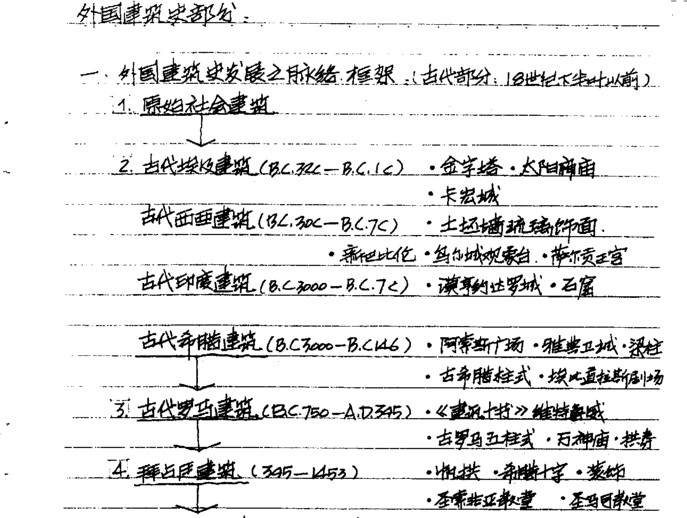 外国建筑史部分:
一、外国建筑史发展之脉络框架:(古代部分:18世纪下半叶以前)
1. 原始社会建筑
2. 古代埃及建筑(B.C.32C—B.C.1C) ·金字塔·太阳神庙
·卡宏城
古代西亚建筑(B.C.30C—B.C.7C) ·土坯墙琉璃饰面.
·新巴比伦·乌尔城观象台.·萨尔贡王宫
古代印度建筑(B.C3000—B.C.7C) ·漠亨约达罗城·石窟
古代希腊建筑(B.C3000—B.C146) ·阿索斯广场·雅典卫城·梁柱
·古希腊柱式·埃比道拉斯剧场
3. 古代罗马建筑(B.C.750—A.D.345) ·《建筑十书》维特鲁威
·古罗马五柱式·万神庙·拱券
4. 拜占庭建筑(345—1453) ·帆拱·希腊十字·装饰
·圣索菲亚教堂 ·圣马可教堂